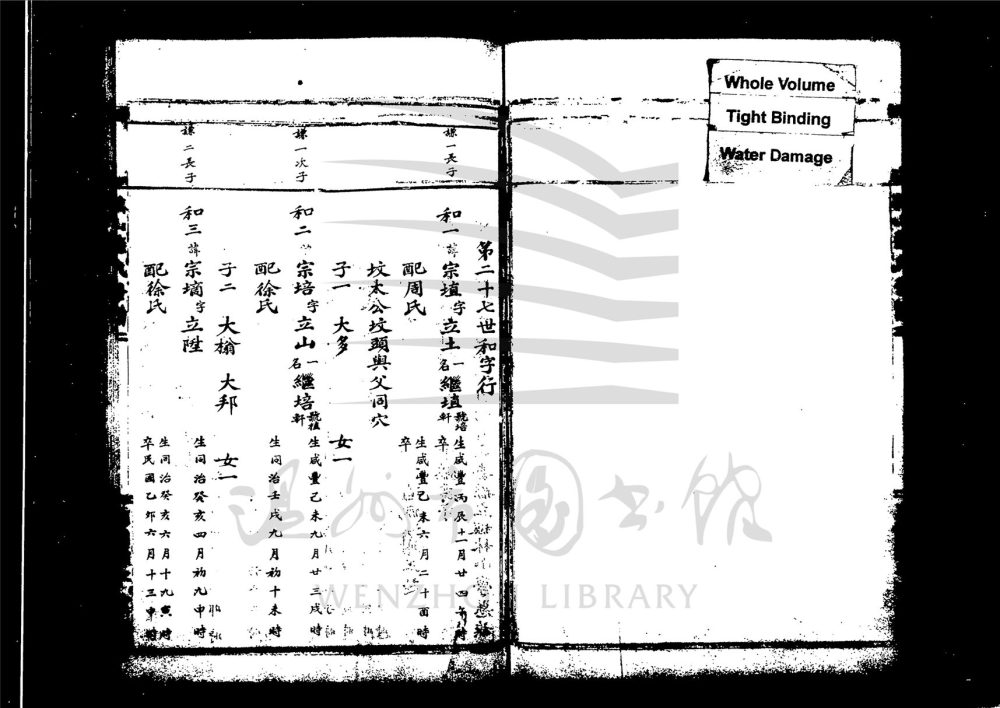 Whole Volume
Tight Binding
Water Damage
第二十七世和字行
謙一長子
和一 諱宗埴字立土一名繼埴號培軒 生咸豐丙辰十一月廿四午時
卒
配周氏 生咸豐己未六月二十酉時
卒
坟太公坟頭與父同穴
子一 大多 女一
謙一次子
和二 宗培字立山一名繼培號植軒 生咸豐己未九月廿三戌時
配徐氏 生同治壬戌九月初十未時
子二 大榆 大邦 女一
謙二長子
和三 諱宗墒字立陞 生同治癸亥四月初九申時
配徐氏 生同治癸亥六月十九寅時
卒民國乙卯六月十三申時
溫州圖書館
WENZHOU LIBRARY